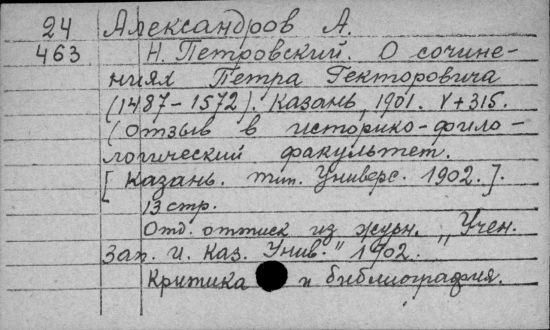 24 Александров А.
463 Н. Петровский. О сочине-
ниях Петра Гекторовича
(1487-1572). Казань, 1901. V+315.
(Отзыв в историко-фило-
логический факультет.
[Казань. тип. Универс. 1902.].
13 стр.
Отд. оттиск из журн. „Учен.
Зап. И. Каз. Унив.“ 1902.
Критика и библиография.